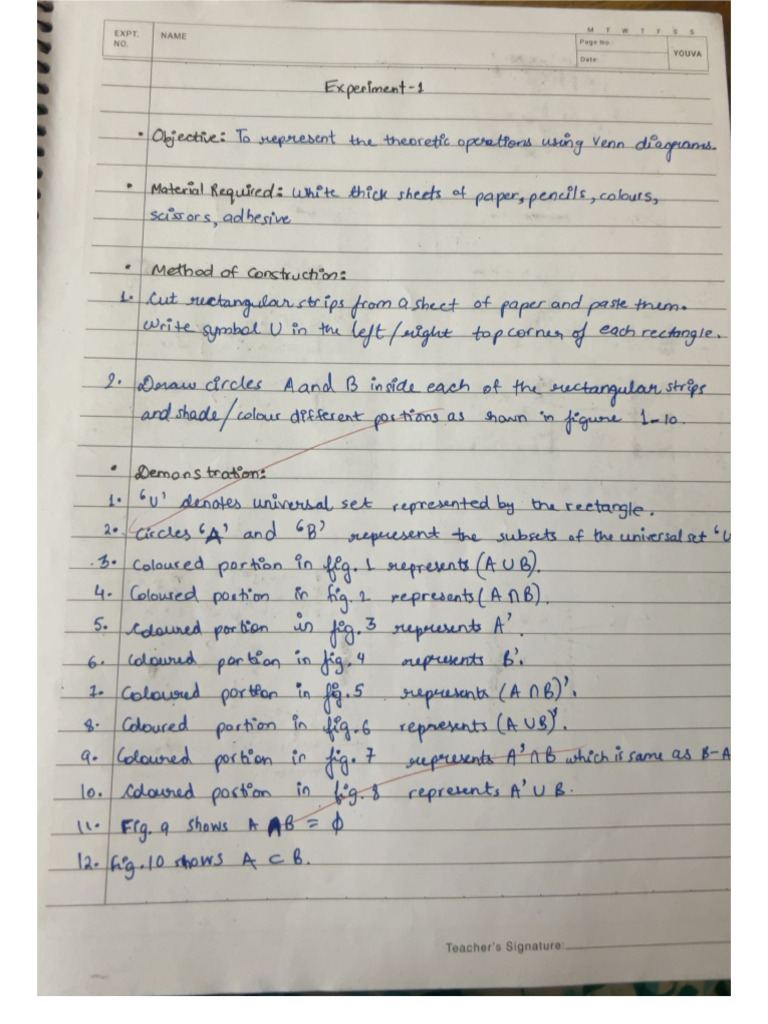 EXPT. NO.
NAME
M T W T F S S
Page No.:
Date:
YOUVA
Experiment-1
• Objective: To represent the theoretic operations using Venn diagrams.
• Material Required: White thick sheets of paper, pencils, colours,
scissors, adhesive
• Method of Construction:
1. Cut rectangular strips from a sheet of paper and paste them.
Write symbol U in the left/right top corner of each rectangle.
2. Draw circles A and B inside each of the rectangular strips
and shade/colour different portions as shown in figure 1-10.
• Demonstration:
1. 'U' denotes universal set represented by the rectangle.
2. Circles 'A' and 'B' represent the subsets of the universal set 'U
3. Coloured portion in fig. 1 represents (A ∪ B).
4. Coloured portion in fig. 2 represents (A ∩ B).
5. Coloured portion in fig. 3 represents A'.
6. Coloured portion in fig. 4 represents B'.
7. Coloured portion in fig. 5 represents (A ∩ B)'.
8. Coloured portion in fig. 6 represents (A ∪ B)'.
9. Coloured portion in fig. 7 represents A' ∩ B which is same as B-A
10. Coloured portion in fig. 8 represents A' ∪ B.
11. Fig. 9 shows A ∩ B = ϕ
12. Fig. 10 shows A ⊂ B.
Teacher's Signature: